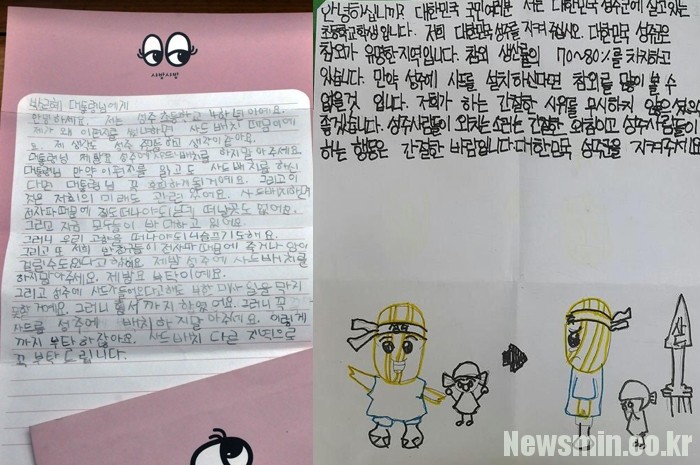 사방사방
박근혜 대통령님에게
안녕하세요. 저는 성주초등학교
제가 왜 이런지를 사드배치 때문이에
요. 제 생각도 성주 생각이 같아요.
대통령님 제발 꼭 성주에 사드배치를 하지말아주세요.
대통령님 만약 이 편지를 읽고도 사드배치를 하신
다면 대통령님 꼭 후회하게 될거에요. 그리고 이
것은 저희의 미래도 있어요. 사드배치하면
전자파때문에 집도 떠나야되는데 떠날곳도 없어요.
그리고 지금 모두들이 반대하고 있어요.
그러니 우리 고향을 떠나야되니 슬프기도 해요.
그리고 또 저희 반 친구들이 전자파 때문에 죽거나 암이
걸릴수도 있다고 해요. 제발 성주에 사드배치를
하지말아주세요. 제발요 부탁이에요.
그리고 성주에 사드 북한 미사일을 막지
못할거에요. 그러니 혈서까지 하였어요. 그러니 꼭
사드를 성주에 배치하지말아주세요. 이렇게
까지 부탁하잖아요. 사드배치 다른 지역으로
꼭 부탁드립니다.
안녕하십니까? 대한민국 국민여러분 저는 대한민국 성주군에 살고있는
초등학교학생입니다. 저희 대한민국성주를 지켜주십시오. 대한민국 성주군은
참외가 유명한지역입니다. 참외 생산률의 70~80%를 차지하고
있습니다. 만약 성주에 사드를 설치하신다면 참외를 많이 볼 수
없을것 입니다. 저희가 하는 간절한 시위를 무시하지 않으셨으면
좋겠습니다. 성주사람들이 외치는소리는 간절한 외침이고 성주사람들이
하는 행동은 간절한 바람입니다. 대한민국 성주군을 지켜주세요
Newsmin.co.kr